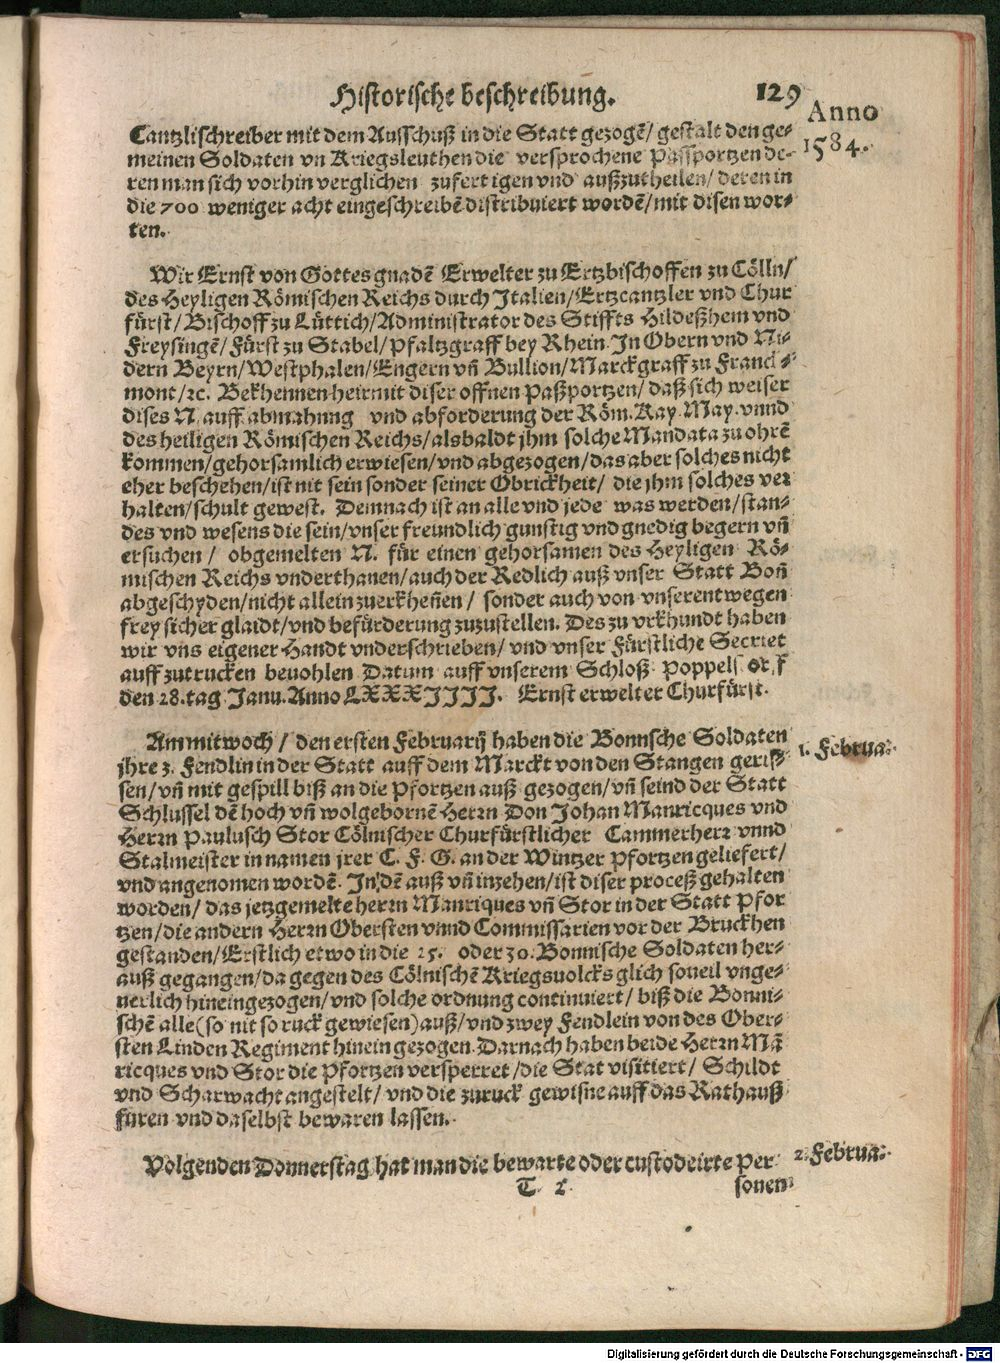 Historische beschreibung. 129
Anno
1584.
Cantzlischreiber mit dem Ausschuß in die Statt gezogẽ/ gestalt den ge-
meinen Soldaten vn Kriegsleuthen die versprochene Passportzen de-
ren man sich vorhin verglichen zufertigen vnd außzutheilen/ deren in
die 700 weniger acht eingeschreibẽ distribuiert wordẽ/ mit disen wor-
ten.
Wir Ernst von Gottes gnadẽ Erwelter zu Ertzbischoffen zu Cölln/
des Heyligen Römischen Reichs durch Italien/ Ertzcantzler vnd Chur
fürst/ Bischoff zu Lüttich/ Administrator des Stiffts Hildeßhem vnd
Freysingẽ/ Fürst zu Stabel/ Pfaltzgraff bey Rhein. In Obern vnd Ni-
dern Beyrn/ Westphalen/ Engern vñ Bullion/ Marckgraff zu Franci-
mont/ ꝛc. Bekhennen heirmit diser offnen Paßportzen/ daß sich weiser
dises N. auff abmahnung vnd abforderung der Röm. Kay. May. vnnd
des heiligen Römischen Reichs/ alsbaldt jhm solche Mandata zu ohrẽ
kommen/ gehorsamlich erwiesen/ vnd abgezogen/ das aber solches nicht
eher beschehen/ ist nit sein sonder seiner Obrickheit/ die jhm solches ver
halten/ schult gewest. Demnach ist an alle vnd jede was werden/ stan-
des vnd wesens die sein/ vnser freundlich gunstig vnd gnedig begern vñ
ersuchen/ obgemelten N. für einen gehorsamen des Heyligen Rö-
mischen Reichs vnderthanen/ auch der Redlich auß vnser Statt Boñ
abgeschyden/ nicht allein zuerkheñen/ sonder auch von vnserent wegen
frey sicher glaidt/ vnd befürderung zuzustellen. Des zu vrkhundt haben
wir vns eigener Handt vnderschrieben/ vnd vnser Fürstliche Secriet
auff zutrucken beuohlen Datum auff vnserem Schloß Poppelsorff
den 28. tag Janu. Anno LXXXIIII. Ernst erwelter Churfürst.
Am mitwoch/ den ersten Februarij haben die Bonnsche Soldaten
1. Februa:
jhre 3. Fendlin in der Statt auff dem Marckt von den Stangen geris-
sen/ vñ mit gespill biß an die Pfortzen auß gezogen/ vñ seind der Statt
Schlussel dẽ hoch vñ wolgebornẽ Herrn Don Johan Manricques vnd
Herrn Paulusch Stor Cölnischer Churfürstlicher Cammerherr vnnd
Stalmeister in namen jrer C. F. G. an der Wintzer Pfortzen geliefert/
vnd angenomen wordẽ. In dẽ auß vñ inzehen/ ist diser proceß gehalten
worden/ das jetzgemelte herrn Manriques vñ Stor in der Statt Pfor
tzen/ die andern Herrn Obersten vnnd Commissarien vor der Bruckhen
gestanden/ Erstlich etwo in die 25. oder 30. Bonnische Soldaten her-
auß gegangen/ da gegen des Cölnischẽ Kriegsuolcks glich soueil vnge-
uerlich hineingezogen/ vnd solche ordnung continuiert/ biß die Bonni-
schẽ alle (so nit so ruck gewiesen) auß/ vnd zwey Fendlein von des Ober-
sten Linden Regiment hinein gezogen. Darnach haben beide Herrn Mã
ricques vnd Stor die Pfortzen versperret/ die Stat visitiert/ Schildt
vnd Scharwacht angestelt/ vnd die zuruck gewisne auff das Rathauß
füren vnd daselbst bewaren lassen.
Volgenden Donnerstag hat man die bewarte oder custodeirte Per-
2. Februa:
T 2 sonen
Digitalisierung gefördert durch die Deutsche Forschungsgemeinschaft - DFG